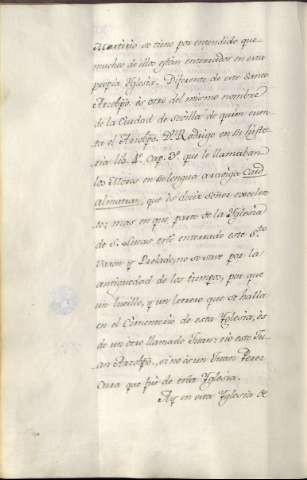 Martirio se tiene por entendido que
muchos de ellos estan enterrados en esta
propia Yglesia. Diferente de este Santo
Arzobpo. es otro del mismo nombre
de la Ciudad de Sevilla de quien cuen-
ta el Arzobpo. Dn. Rodrigo en su histo-
ria lib. 4º. Cap. 3º. que le llamaban
los Moros en su lengua araviga Caeid
Almatran, que es decir señor excelen-
te: mas en que parte de la Yglesia
de S. Lucas esté enterrado este Sto.
Varon y Prelado, no se save por la
antiguedad de los tiempos, por que
un lucillo, y un letrero que se halla
en el Cimenterio de esta Yglesia, es
de un otro llamado Juan: no este Ju-
an Arzobpo., sino es un Juan Perez
Cura que fue de esta Yglesia.
Ay en esta Yglesia de